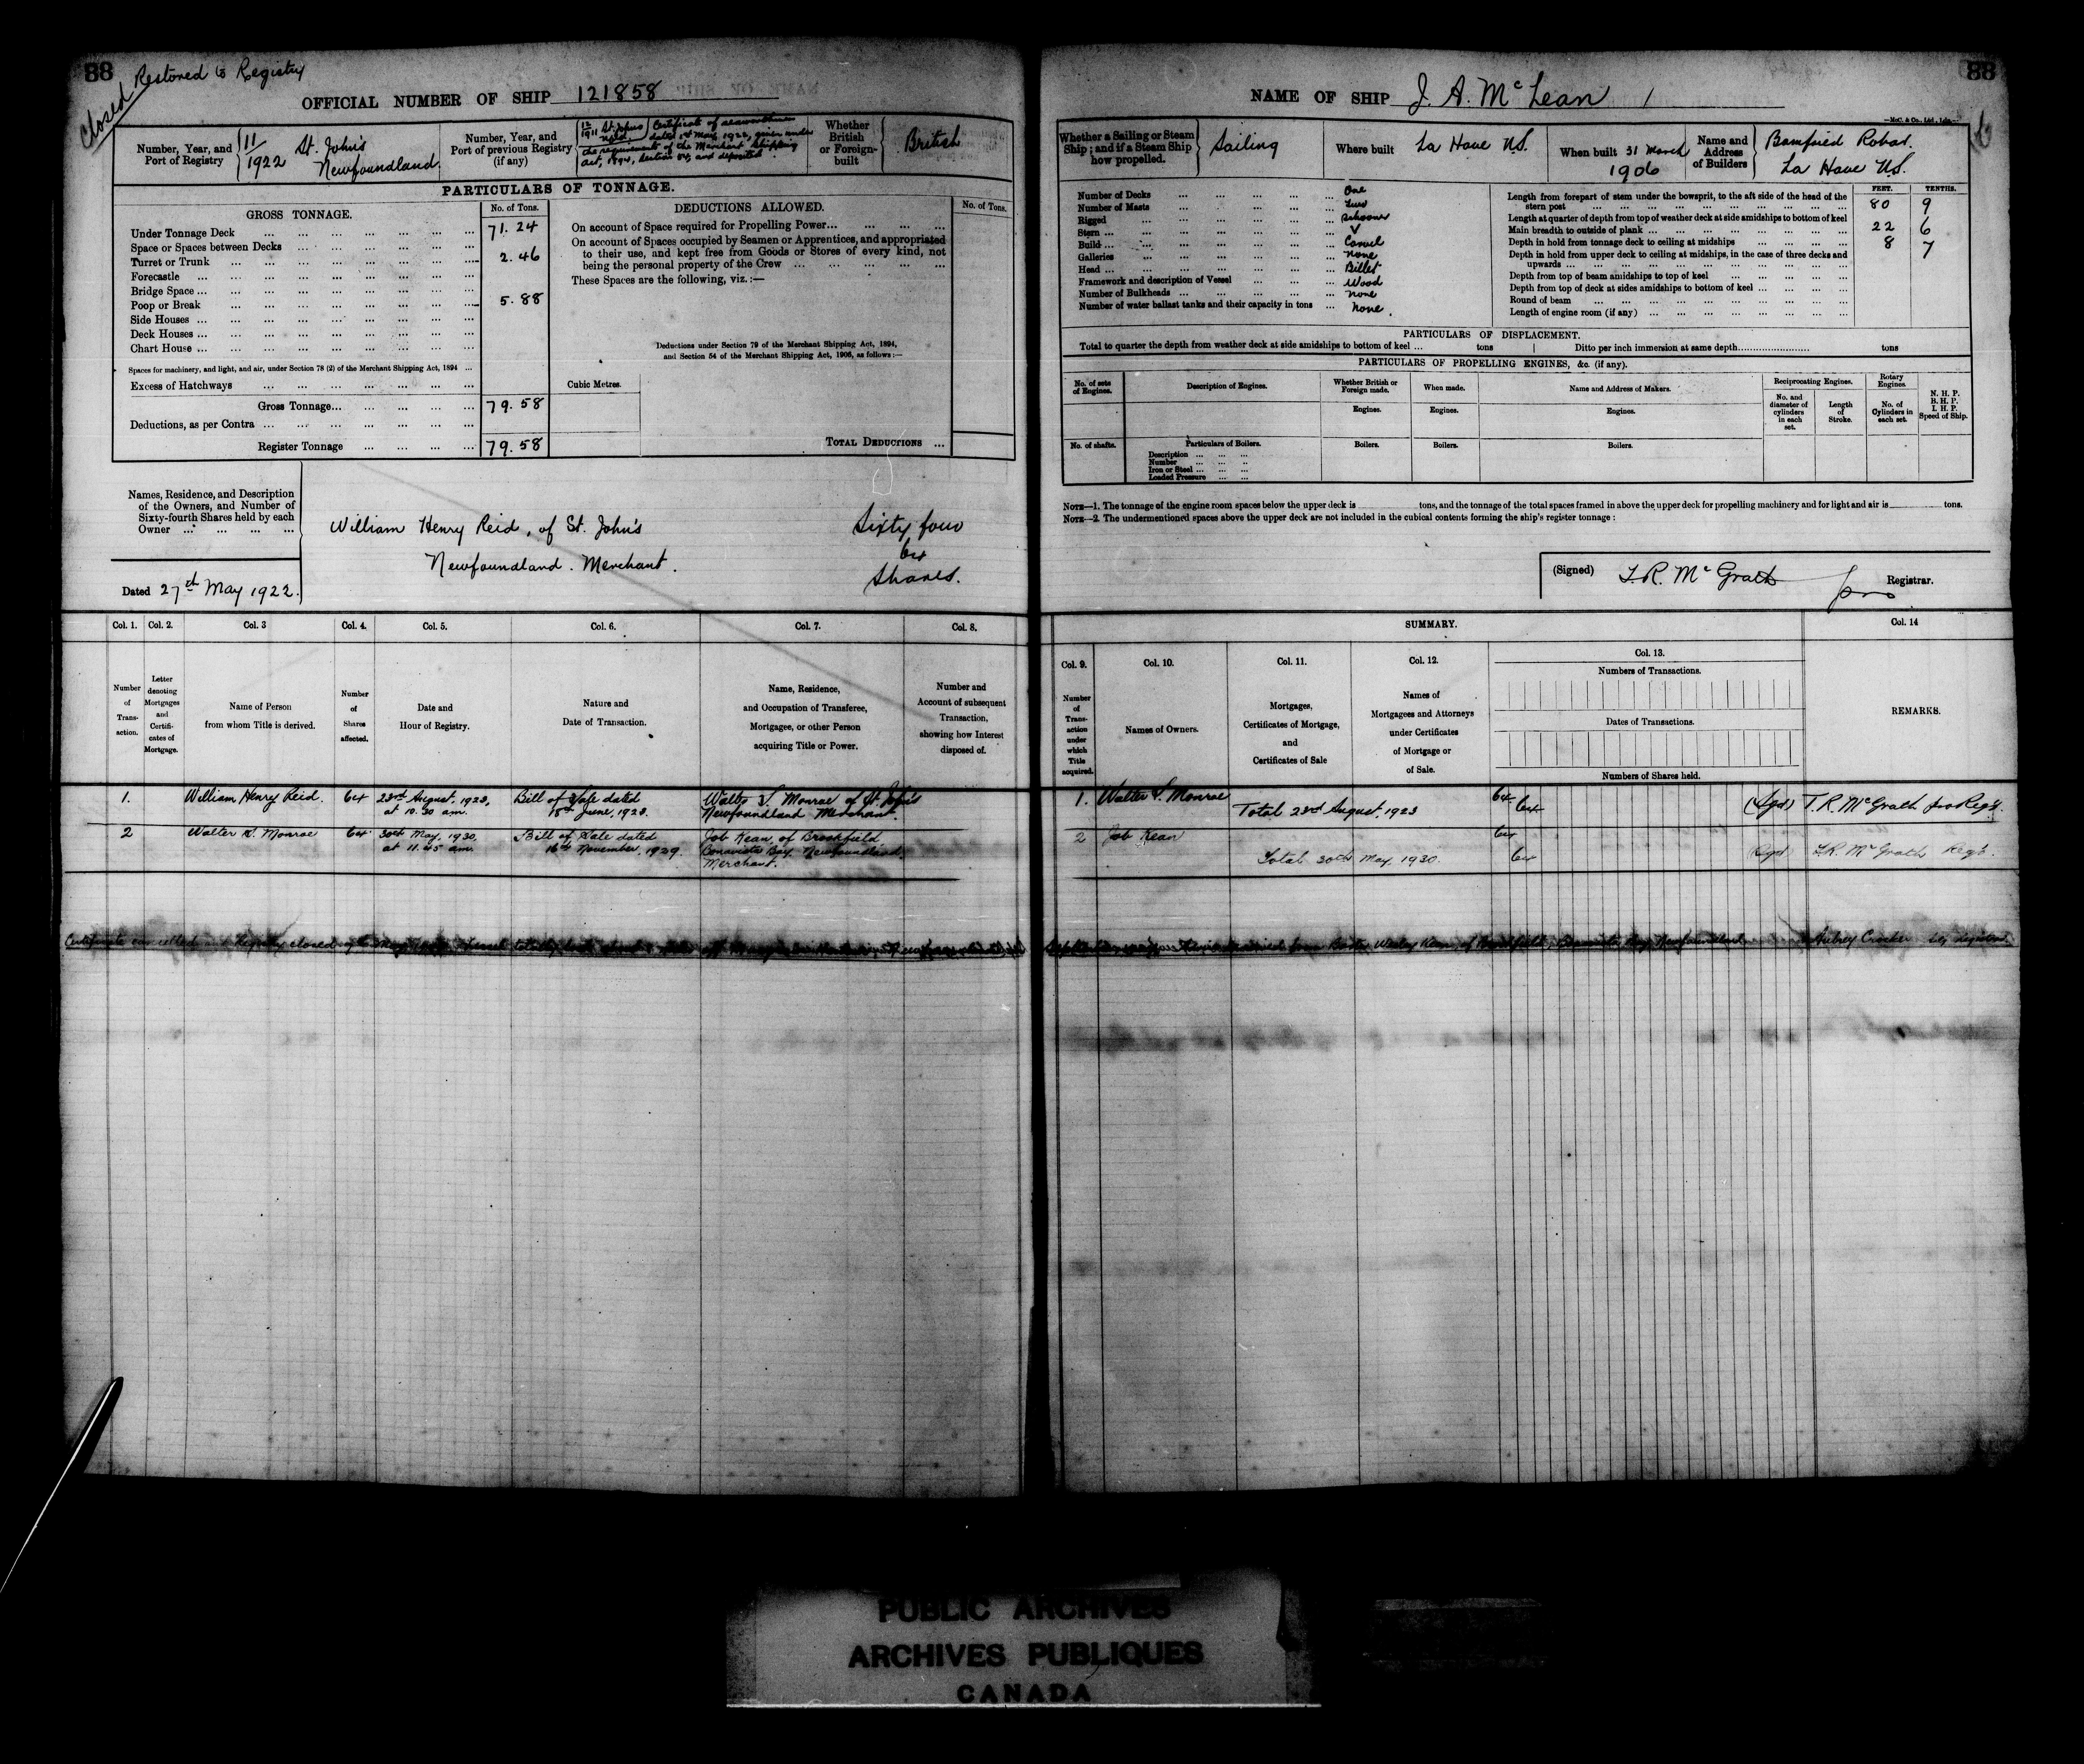 88
Closed
Restored to Registry
OFFICIAL NUMBER OF SHIP 121858
Number, Year, and Port of Registry
11/1922 St. John's Newfoundland
Number, Year, and Port of previous Registry (if any)
12/1911 St. John's Nfld.
Certificate of seaworthiness dated 1st May 1922, given under the requirements of the Merchant Shipping Act, 1894, Section 84, and deposited.
Whether British or Foreign-built
British
PARTICULARS OF TONNAGE.
GROSS TONNAGE.
No. of Tons.
Under Tonnage Deck 71.24
Space or Spaces between Decks
Turret or Trunk 2.46
Forecastle
Bridge Space
Poop or Break 5.88
Side Houses
Deck Houses
Chart House
Spaces for machinery, and light, and air, under Section 78 (2) of the Merchant Shipping Act, 1894
Excess of Hatchways
Gross Tonnage 79.58
Deductions, as per Contra
Register Tonnage 79.58
DEDUCTIONS ALLOWED.
No. of Tons.
On account of Space required for Propelling Power
On account of Spaces occupied by Seamen or Apprentices, and appropriated
to their use, and kept free from Goods or Stores of every kind, not
being the personal property of the Crew
These Spaces are the following, viz.:—
Deductions under Section 79 of the Merchant Shipping Act, 1894,
and Section 54 of the Merchant Shipping Act, 1906, as follows:—
Cubic Metres.
TOTAL DEDUCTIONS
Names, Residence, and Description
of the Owners, and Number of
Sixty-fourth Shares held by each
Owner
William Henry Reid, of St. John's
Newfoundland. Merchant.
Sixty four
64
Shares.
Dated 27th May 1922.
Col. 1. Col. 2. Col. 3 Col. 4. Col. 5. Col. 6. Col. 7. Col. 8.
Number of Transaction.
Letter denoting Mortgages and Certificates of Mortgage.
Name of Person from whom Title is derived.
Number of Shares affected.
Date and Hour of Registry.
Nature and Date of Transaction.
Name, Residence, and Occupation of Transferee, Mortgagee, or other Person acquiring Title or Power.
Number and Account of subsequent Transaction, showing how Interest disposed of.
1. William Henry Reid. 64 23rd August, 1923, at 10.30 am. Bill of Sale dated 18th June, 1923. Walter S. Monroe of St. John's Newfoundland Merchant.
2 Walter S. Monroe 64 30th May, 1930 at 11.45 am. Bill of Sale dated 16th November, 1929. Job Kean, of Brookfield Bonavista Bay, Newfoundland, Merchant.
Certificate cancelled and Registry closed
88
NAME OF SHIP J. A. McLean
—McC. & Co., Ltd., Ldn.—
Whether a Sailing or Steam Ship; and if a Steam Ship how propelled.
Sailing
Where built La Have N.S.
When built 31 March 1906
Name and Address of Builders
Robar.
La Have N.S.
Number of Decks One
Number of Masts Two
Rigged Schooner
Stern V
Build Carvel
Galleries None
Head Billet
Framework and description of Vessel Wood
Number of Bulkheads None
Number of water ballast tanks and their capacity in tons None.
FEET. TENTHS.
Length from forepart of stem under the bowsprit, to the aft side of the head of the stern post 80 9
Length at quarter of depth from top of weather deck at side amidships to bottom of keel
Main breadth to outside of plank 22 6
Depth in hold from tonnage deck to ceiling at midships 8 7
Depth in hold from upper deck to ceiling at midships, in the case of three decks and upwards
Depth from top of beam amidships to top of keel
Depth from top of deck at sides amidships to bottom of keel
Round of beam
Length of engine room (if any)
PARTICULARS OF DISPLACEMENT.
Total to quarter the depth from weather deck at side amidships to bottom of keel ... tons Ditto per inch immersion at same depth tons
PARTICULARS OF PROPELLING ENGINES, &c. (if any).
No. of sets of Engines.
Description of Engines.
Whether British or Foreign made.
When made.
Name and Address of Makers.
Reciprocating Engines.
Rotary Engines.
N. H. P.
B. H. P.
I. H. P.
Speed of Ship.
Engines. Engines. Engines.
No. and diameter of cylinders in each set.
Length of Stroke.
No. of Cylinders in each set.
No. of shafts.
Particulars of Boilers.
Boilers. Boilers. Boilers.
Description
Number
Iron or Steel
Loaded Pressure
NOTE—1. The tonnage of the engine room spaces below the upper deck is tons, and the tonnage of the total spaces framed in above the upper deck for propelling machinery and for light and air is tons.
NOTE—2. The undermentioned spaces above the upper deck are not included in the cubical contents forming the ship's register tonnage:
(Signed) T.R. McGrath pro Registrar.
SUMMARY.
Col. 9. Col. 10. Col. 11. Col. 12. Col. 13. Col. 14
Number of Transaction under which Title acquired.
Names of Owners.
Mortgages, Certificates of Mortgage, and Certificates of Sale
Names of Mortgagees and Attorneys under Certificates of Mortgage or of Sale.
Numbers of Transactions.
Dates of Transactions.
Numbers of Shares held.
REMARKS.
1. Walter S. Monroe 64
Total 23rd August, 1923 64 (Sgd) T.R. McGrath pro Reg'r.
2 Job Kean 64
Total 30th May, 1930. 64 (Sgd) T.R. McGrath Reg'r.
Wesley Kean, of Brookfield, Bonavista Bay, Newfoundland. Aubrey Crocker
PUBLIC ARCHIVES
ARCHIVES PUBLIQUES
CANADA